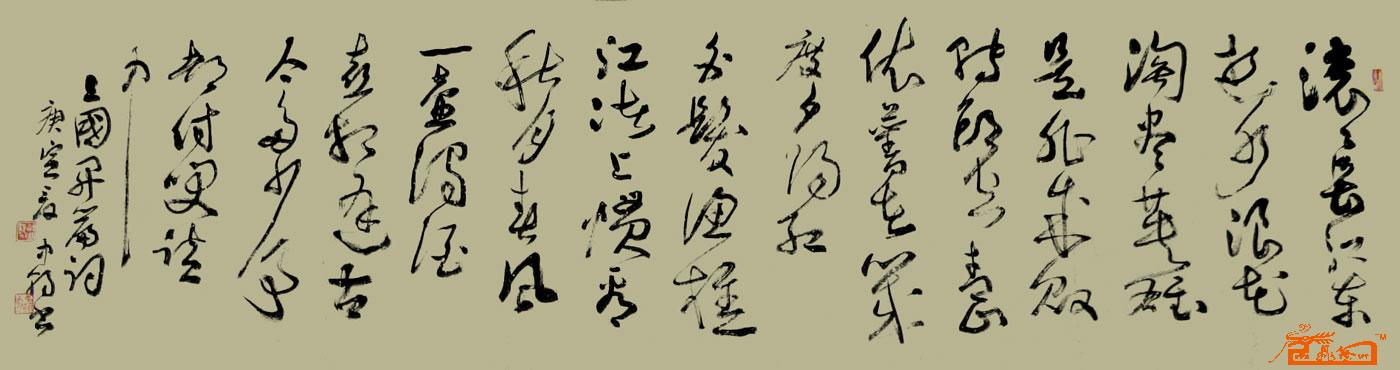 滚滚長江東
逝水浪花
淘尽英雄
是非成敗
转頭空青山
依舊在几
度夕陽红
白髮渔樵
江渚上惯看
秋月春风
一壶濁酒
喜相逢古
今多少事
都付笑谈
中
三國开篇词
庚寅夏